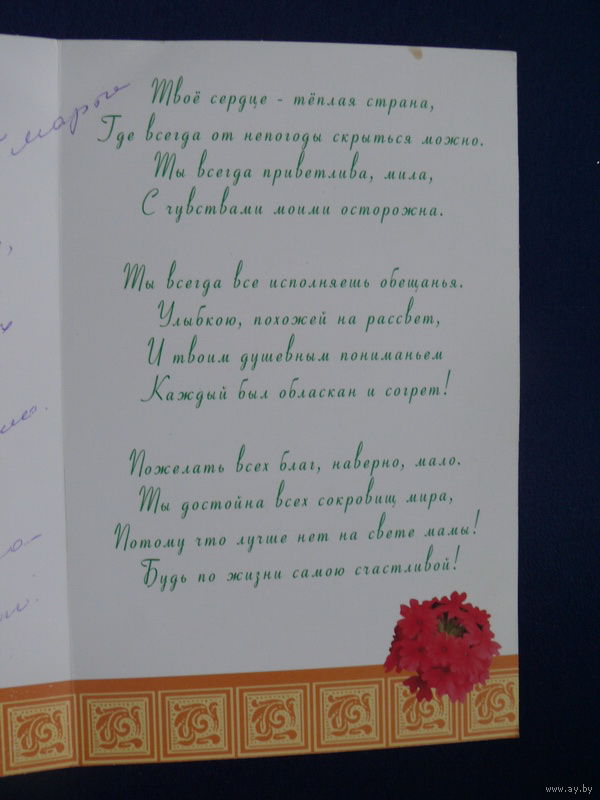 марта
Твоё сердце - тёплая страна,
Где всегда от непогоды скрыться можно.
Ты всегда приветлива, мила,
С чувствами моими осторожна.
Ты всегда все исполняешь обещанья.
Улыбкою, похожей на рассвет,
И твоим душевным пониманьем
Каждый был обласкан и согрет!
Пожелать всех благ, наверно, мало.
Ты достойна всех сокровищ мира,
Потому что лучше нет на свете мамы!
Будь по жизни самою счастливой!
www.ay.by